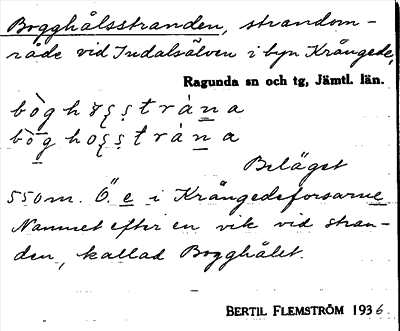 Bogghålsstranden, strandom-
råde vid Indalsälven i byn Krångede,
Ragunda sn och tg, Jämtl. län.
Beläget
550 m. Ö. e i Krångedeforsarne
Namnet efter en vik vid stran-
den, kallad Bogghålet.
BERTIL FLEMSTRÖM 1936.